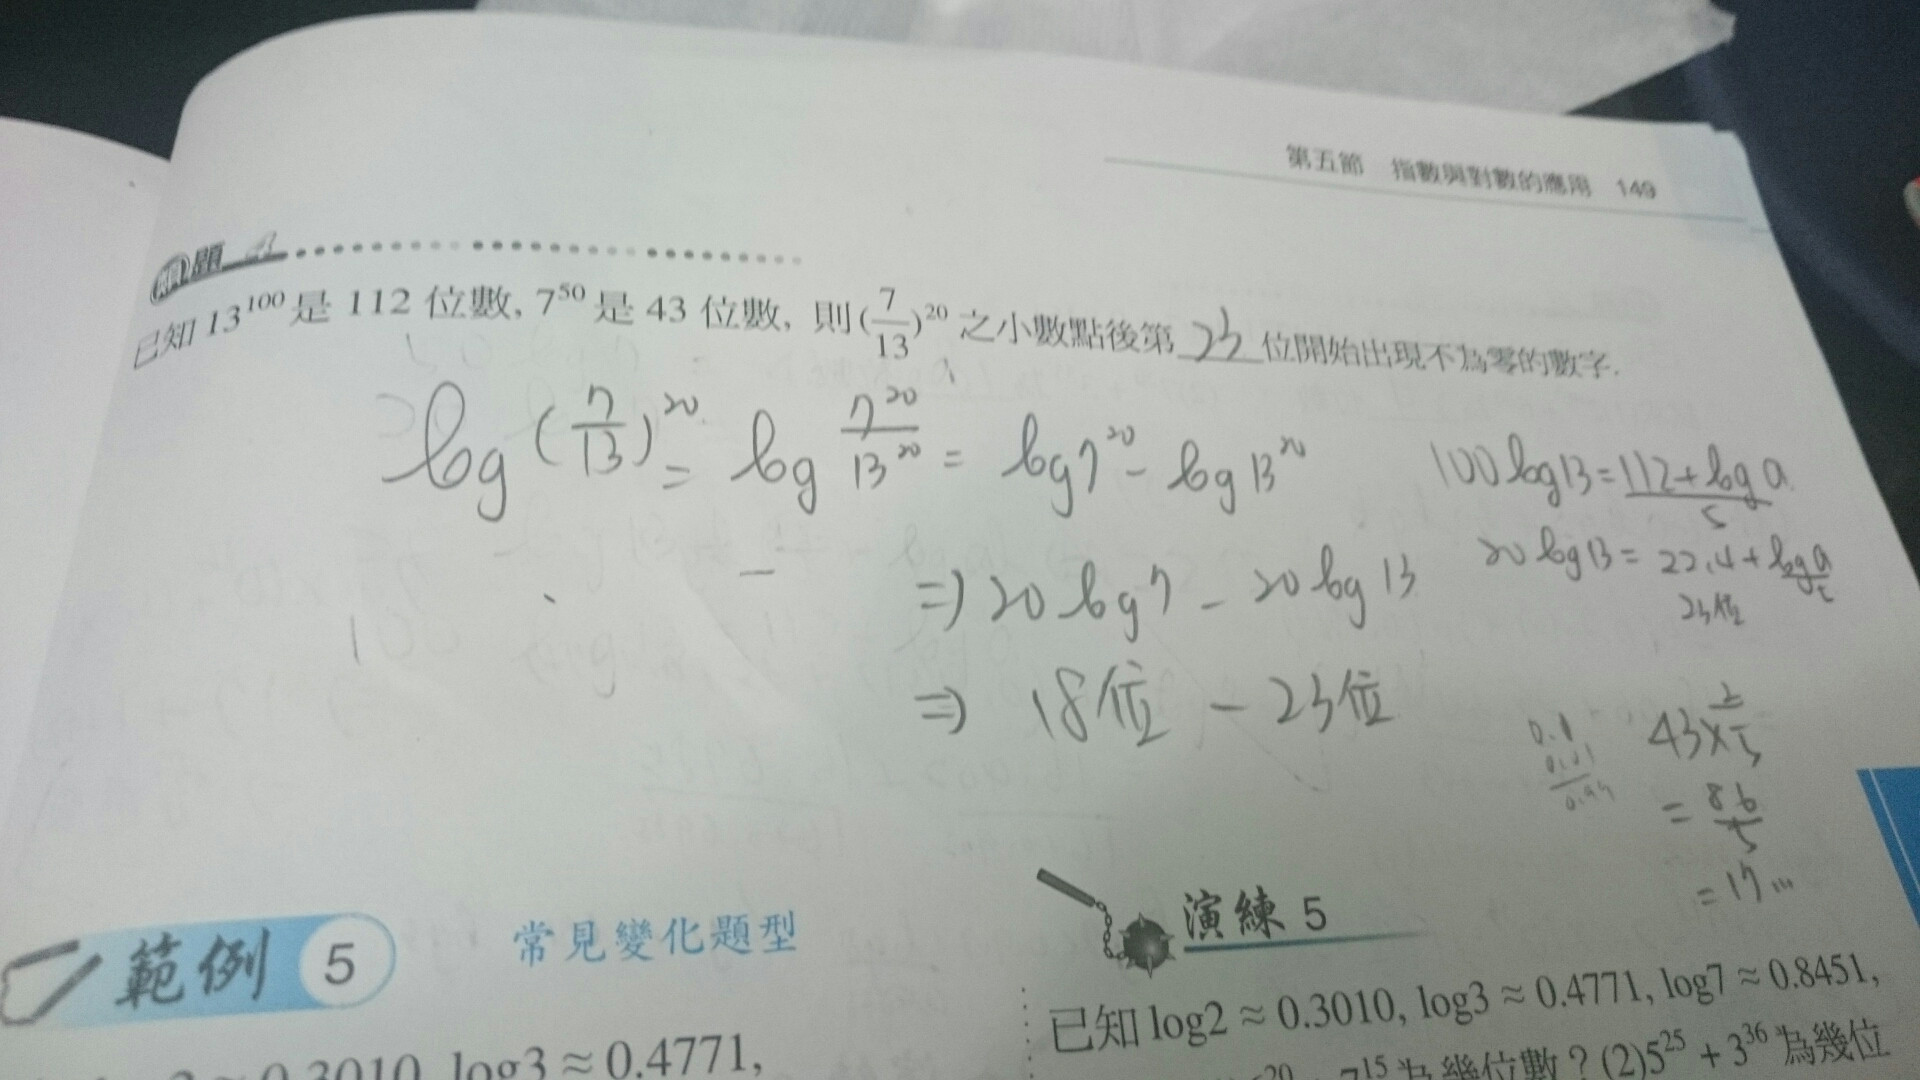 第五節 指數與對數的應用 149
類題 4
已知 13^100 是 112 位數, 7^50 是 43 位數, 則 (7/13)^20 之小數點後第 23 位開始出現不為零的數字.
log (7/13)^20 = log 7^20/13^20 = log7^20 - log13^20
⇒ 20 log7 - 20 log13
⇒ 18位 - 23位
100 log13 = 112 + log a
5
20 log13 = 22.4 + log a/5
23位
0.1
0.01
43×2/5
= 86/5
= 17...
範例 5 常見變化題型
0.3010, log3 ≈ 0.4771,
演練 5
已知 log2 ≈ 0.3010, log3 ≈ 0.4771, log7 ≈ 0.8451,
7^15 為幾位數？(2)5^25 + 3^36 為幾位